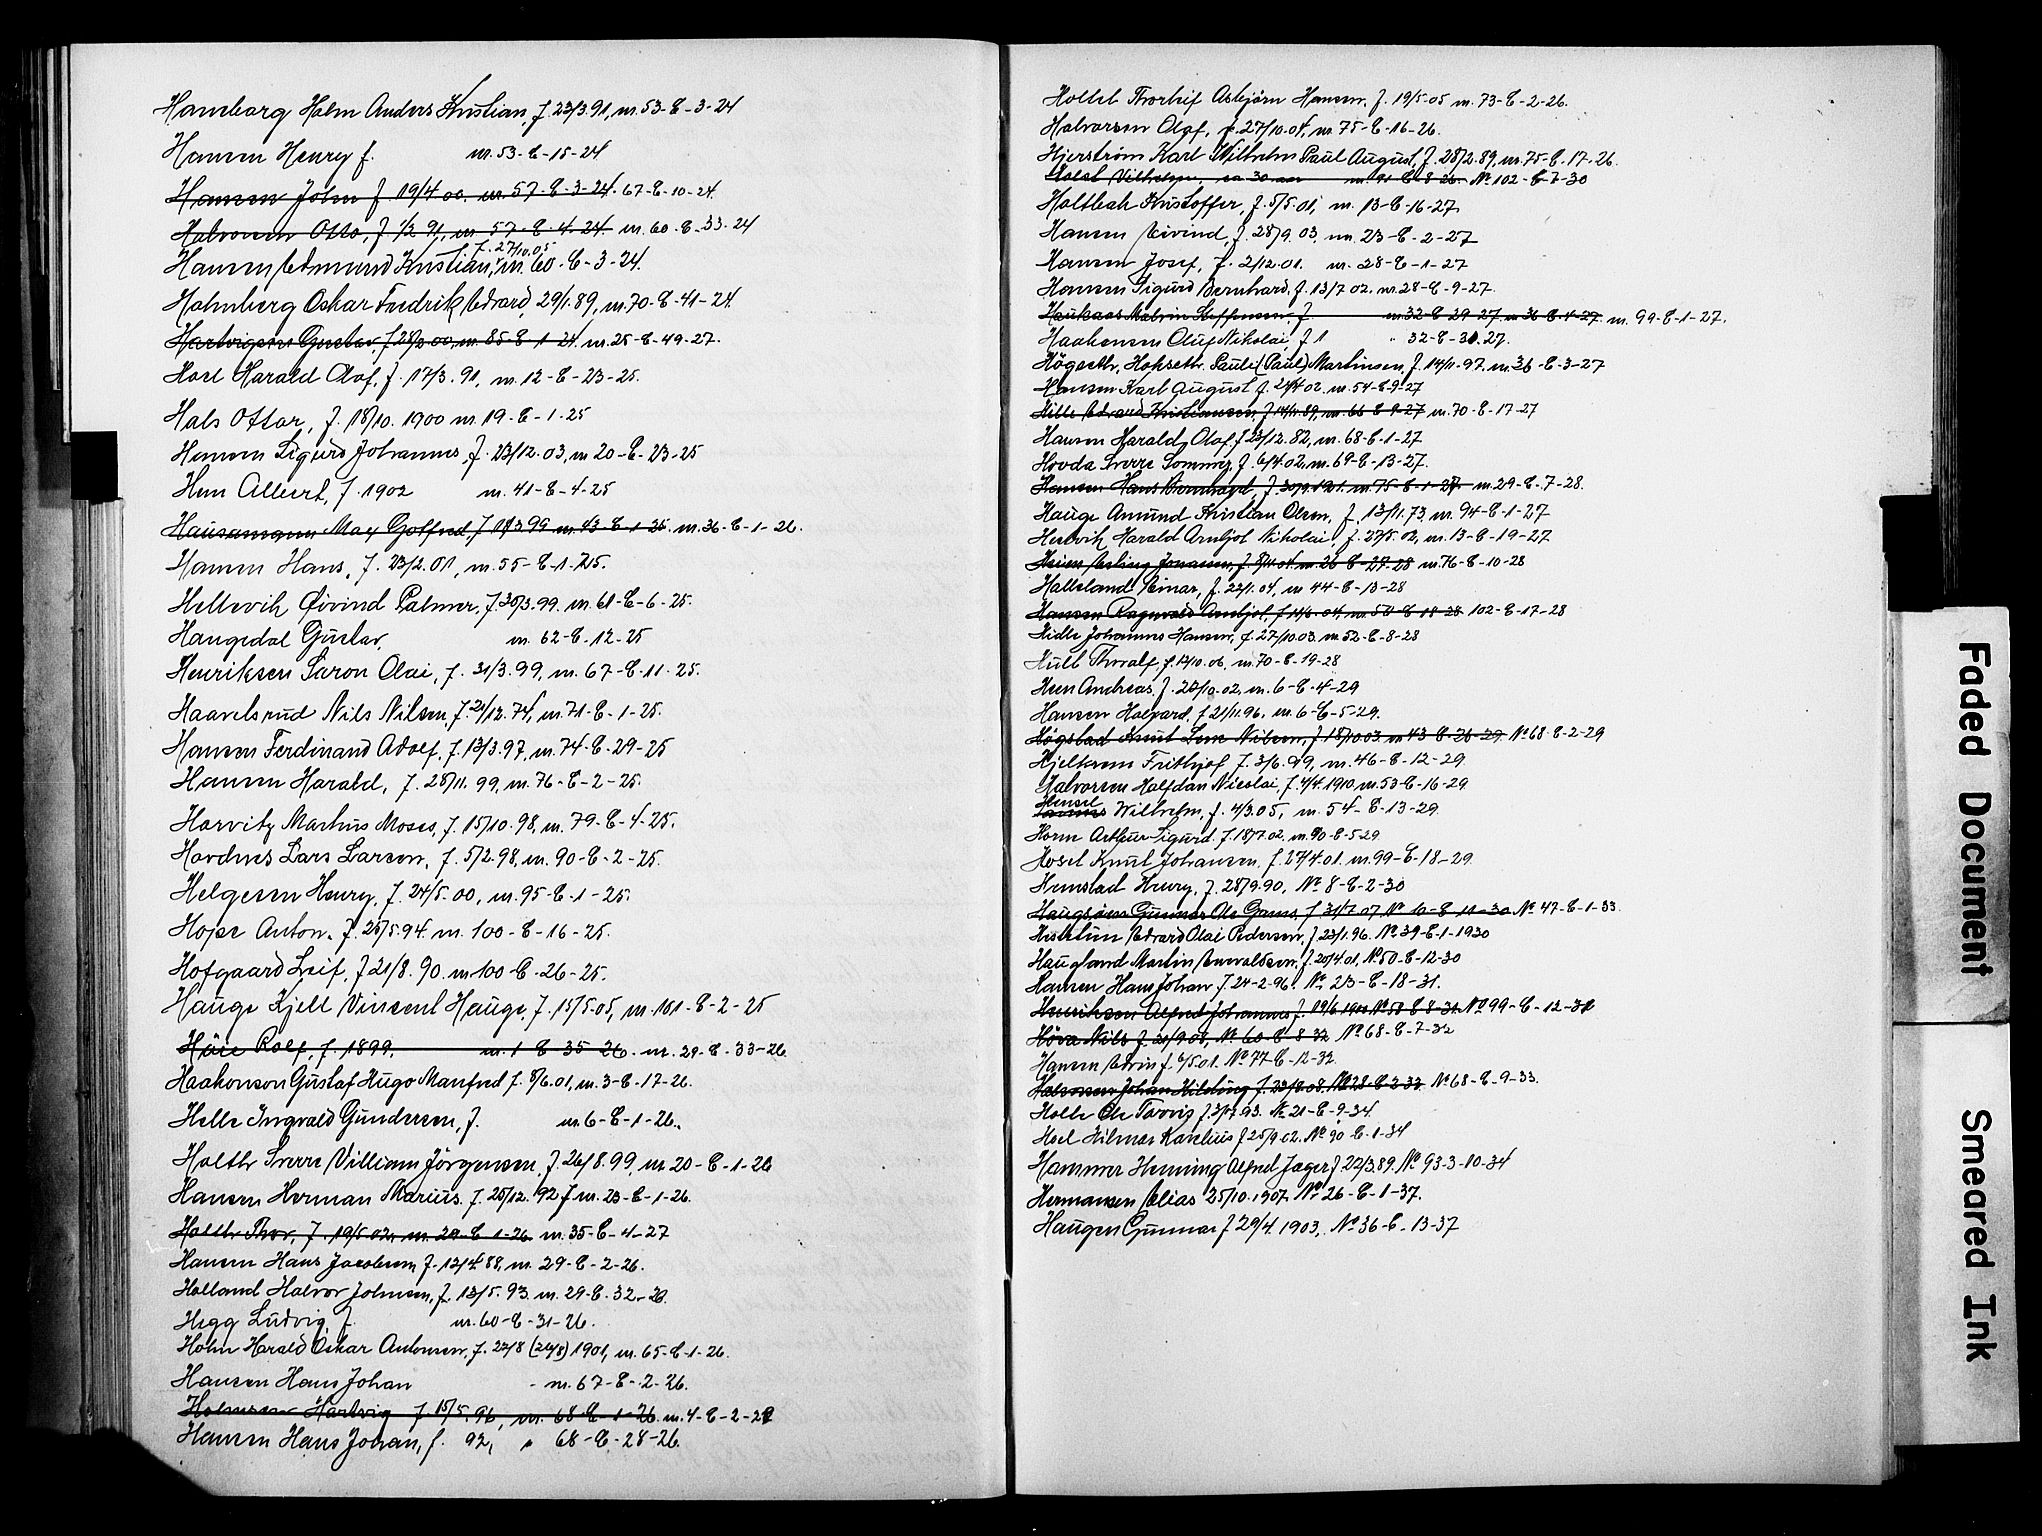 Hamborg Holm Anders Kristian, f. 23/3.91, nr. 53-E-3-24
Hansen Henry f. nr. 53-E-15-24
Hansen John f 19/4 00. nr. 57-E-3-24. 67-E-10-24.
Halvorsen Otto, f 1/2 91, nr 57-E-4-24. nr. 60-E-33-24
f. 27/10.05
Hansen Edmund Kristian, nr. 60-E-3-24.
Holmberg Oskar Fredrik Edvard, 29/1.89, nr. 70-E-41-24.
Hartvigsen Gustav, f 28/2 00, nr. 85-E-1-24. nr. 25-E-49-27.
Hoel Harald Olaf, f. 17/3.91, nr. 12-E-23-25.
Hals Ottar, f. 18/10. 1900 nr. 19-E-1-25
Hansen Sigurd Johannes, f. 23/12.03, nr 20-E-23-25
Hem Albert, f. 1902 nr. 41-E-4-25
Hausamann Max Gotfred, f 11/3 99 nr. 43-E-1-25. nr. 36-E-1-26.
Hansen Hans, f. 23/2.01, nr. 55-E-1-25.
Hellevik Øivind Palmer, f. 30/3.99. nr. 61-E-6-25.
Haugedal Gustav, nr. 62-E-12-25
Henriksen Saron Olai, f. 31/3.99, nr. 67-E-11-25.
Haavelsrud Nils Nilsen, f. 21/12.74, nr. 71-E-1-25.
Hansen Ferdinand Adolf, f. 13/3.97, nr. 74-E-29-25
Hansen Harald, f. 28/11.99, nr. 76-E-2-25.
Horvitz Markus Moses, f. 15/10.98, nr. 79-E-4-25.
Hovdnes Lars Larsen, f. 5/2.98, nr. 90-E-2-25.
Helgesen Henry, f. 24/5.00, nr. 95-E-1-25.
Hope Anton. f. 25/5.94. nr. 100-E-16-25.
Hofgaard Leif, f 21/8.90. nr 100-E-26-25.
Hauge Kjell Vincent Hauge, f. 15/5.05, nr. 101-E-2-25
Høie Rolf, f. 1899. nr. 1-E-35-26. nr. 29-E-33-26
Haakonson Gustaf Hugo Manfred f. 8/6.01, nr. 3-E-17-26.
Helle Ingvald Gundersen, f. nr. 6-E-1-26.
Holthe Sverre William Jörgensen, f. 26/8.99, nr 20-E-1-26
Hansen Herman Marius. f. 25/12.92 f nr. 23-E-1-26.
Holthe Thor, f. 19/5 02, nr. 29-E-1-26. nr. 35-E-4-27
Hansen Hans Jacobsen f. 12/4 88, nr. 29-E-2-26.
Holland Halvor Johnsen, f. 13/5.93. nr. 29-E-32-26.
Hegg Ludvig, f. nr. 60-E-31-26.
Holm Harald Oskar Antonsen, f. 22/8 (24/8) 1901, nr. 65-E-1-26.
Hansen Hans Johan - nr. 67-E-2-26.
Holmsen Hartvig f. 15/5.96, nr. 68-E-1-26. nr. 4-E-2-29
Hansen Hans Johan, f. 92, " 68-E-28-26.
Holtet Thorleif Asbjörn Hansen, f. 19/5.05 nr. 73-E-2-26.
Halvorsen Olaf, f. 27/10.04, nr. 75-E-16-26.
Hjerström Karl Wilhelm Paul August, f. 28/2.89, nr. 75-E-17-26.
Holst Vilhelm, ca 30 aar nr. 91-E-8-26. No 102-E-7-30
Holtleah Kristoffer, f. 5/5.01, nr. 13-E-16-27.
Hansen Eivind, f. 28/9.03. nr. 23-E-2-27
Hansen Josef, f. 2/12.01. nr. 28-E-1-27
Hansen Sigurd Bernhard, f. 13/7 02. nr. 28-E-9-27.
Haukaas Malvin Steffensen, f nr. 32-E-29-27. nr 36-E-4-27. nr. 99-E-1-27.
Haakensen Oluf Nikolai, f 1 " 32-E-30.27.
Högseth, Hokseth Pauli (Paul) Martinsen, f. 14/11.97. nr. 36-E-3-27
Hansen Karl August f. 24/4 02, nr. 54-E-9-27
Hille Edvard Kristiansen, f. 14/11.89, nr. 66-E-9-27 nr. 70-E-17-27
Hansen Harald Olaf f 23/12.82, nr. 68-E-1-27
Hovda Sverre Sommer, f. 6/4.02, nr. 69-E-13-27.
Hansen Hans Bernhard, f. 30/9.1901. nr. 75-E-1-27 nr. 29-E-7-28.
Hauge Amund Kristian Olsen, f. 13/11.73, nr. 94-E-1-27
Hestvik Harald Arnljot Nikolai, f. 27/5.02, nr. 13-E-19-27
Heien Erling Jonassen, f. 8/4 01. nr. 26-E-27-28 nr. 76-E-10-28
Halleland Einar, f. 22/1.04, nr 44-E-13-28
Hansen Ragnvald Arnljot, f. 14/6.04, nr. 54-E-18-28 102-E-17-28
Hidle Johannes Hansen, f. 27/10.03. nr. 52-E-8-28
Hull Thoralf, f. 12/10.06, nr. 70-E-19-28
Heen Andreas, f. 20/10.02, nr. 6-E-4-29
Hansen Halvard, f 21/11.96. nr. 6-E-5-29.
Högstad Knut Lem Nilsen, f 18/10 03. nr 43-E-26-29. No 68-E-2-29
Hjelkrem Frithjof f. 3/6.99, nr. 46-E-12-29.
Halvorsen Halfdan Nicolai, f. 4/4.1910, nr. 53-E-16-29.
Hensel
Wilhelm, f. 4/3.05, nr. 54-E-13-29.
Horn Arthur Sigurd. f. 18/7.02. nr. 90-E-5-29.
Hosel Knut Johansen, f. 27/4.01. nr. 99-E-18-29.
Hemstad Henry, f. 28/9.90, No 8-E-2-30
Haugsöen Gunnar Ole Gams, f. 31/7 07 No 10-E-11-30 No 47-E-1-33.
Hestetun Edvard Olai Pedersen, f 23/1.96. No 39-E-1-1930
Haugland Martin Enevaldsen, f. 20/4.01, No 50-E-12-30
Hansen Hans Johan f. 24-2-96. No 23-E-18-31.
Henriksen Alfred Johannes f. 19/6 1900 No 50-E-8-31. No 99-E-12-31
Höva Nils f. 21/9.08, No 60-E-8-32 No 68-E-7-32
Hansen Edvin f. 6/5.01. No 77-E-12-32.
Halvorsen Johan Hilding f. 23/8.08. No 28-E-3-33 No 68-E-9-33.
Holte Ole Tarvis f 3/7.93. No 21-E-9-34
Hoel Hilmar Karelius f 25/9.02. No 90-E-1-34
Hammer Henning Alfred Jæger f 22/3.89. No 93-3-10-34
Hermansen Elias 25/10.1907. No 26-E-1-37.
Haugen Gunnar f 29/4.1903, No 36-E-13-37
Faded Document
Smeared Ink